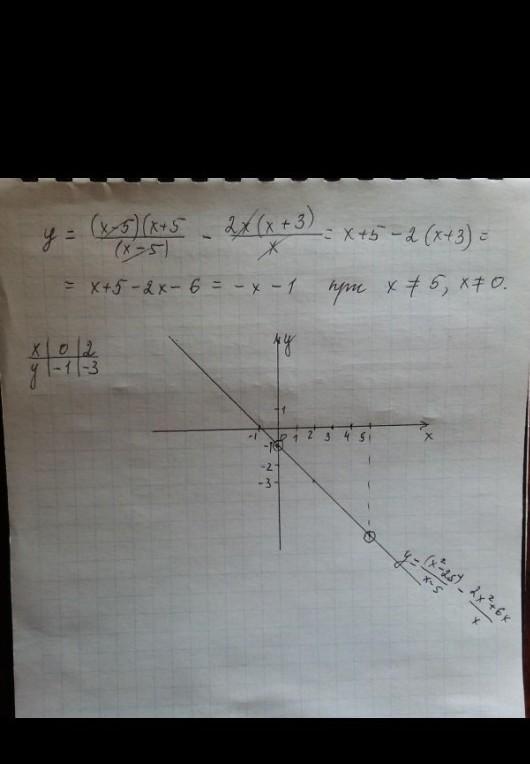 y = (x-5)(x+5 / (x-5) - 2x(x+3) / x = x+5-2(x+3) =
= x+5-2x-6 = -x-1 при x ≠ 5, x ≠ 0.
x | 0 | 2
y | -1 | -3
y
1
-1 0 1 2 3 4 5 x
-1
-2
-3
y = (x²-25) / x-5 - 2x²+6x / x